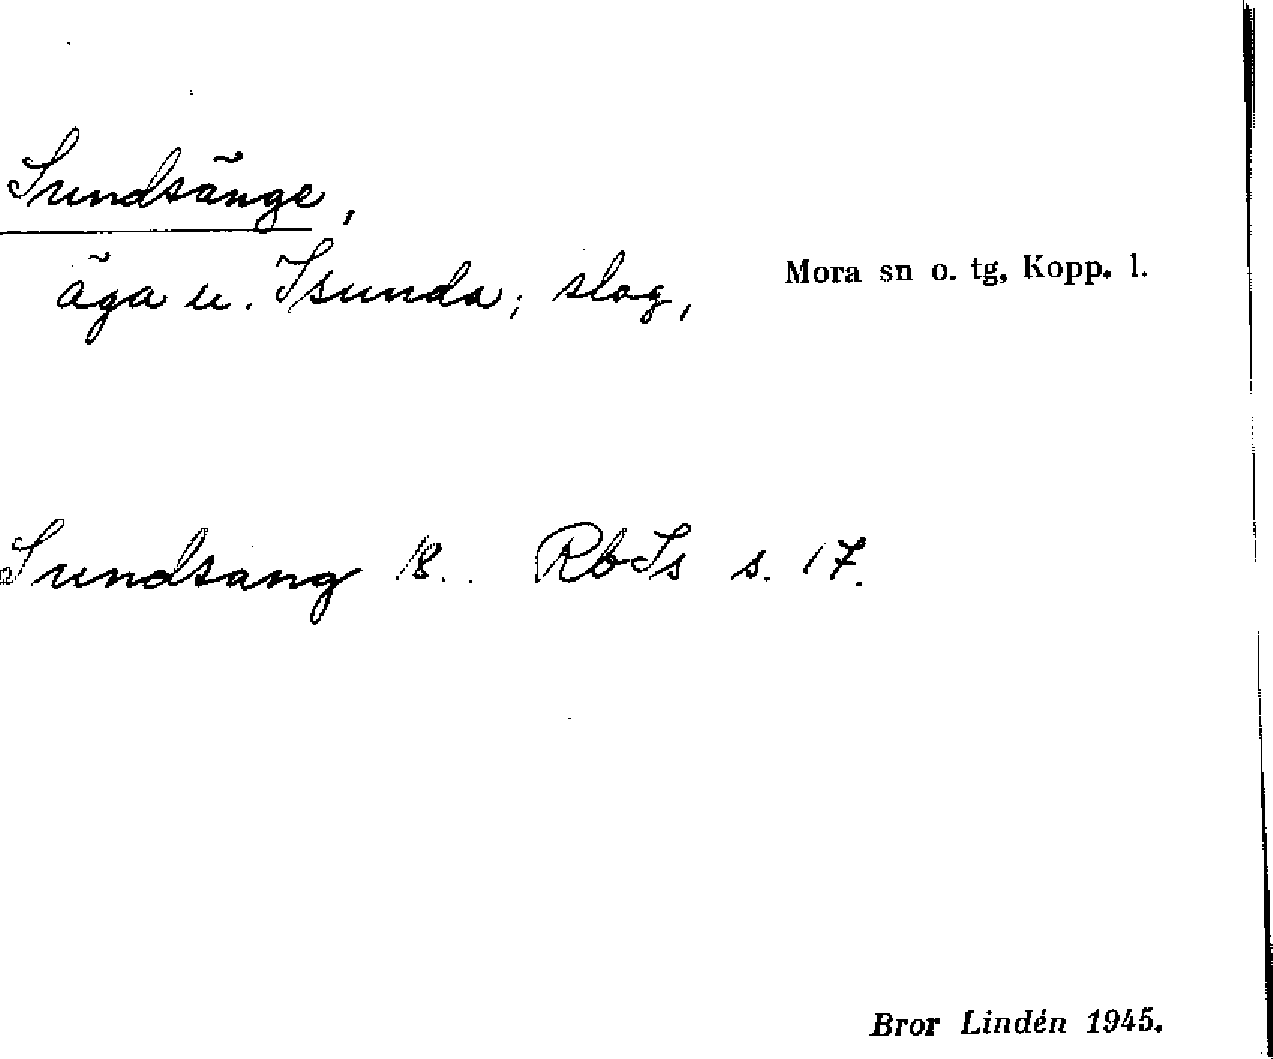 Sundsänge,
äga u. Isunda; slog,
Mora sn o. tg, Kopp. l.
Sundsang 18.. RbIs s. 17.
Bror Lindén 1945.